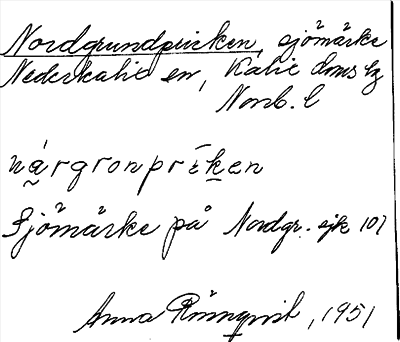 Nordgrundpricken, sjömärke
Nederkalix sn, Kalix doms lg
Norrb. l
nárgronprıḱen
Sjömärke på Nordgr. sjk 107
Anna Rönnqvist, 1951